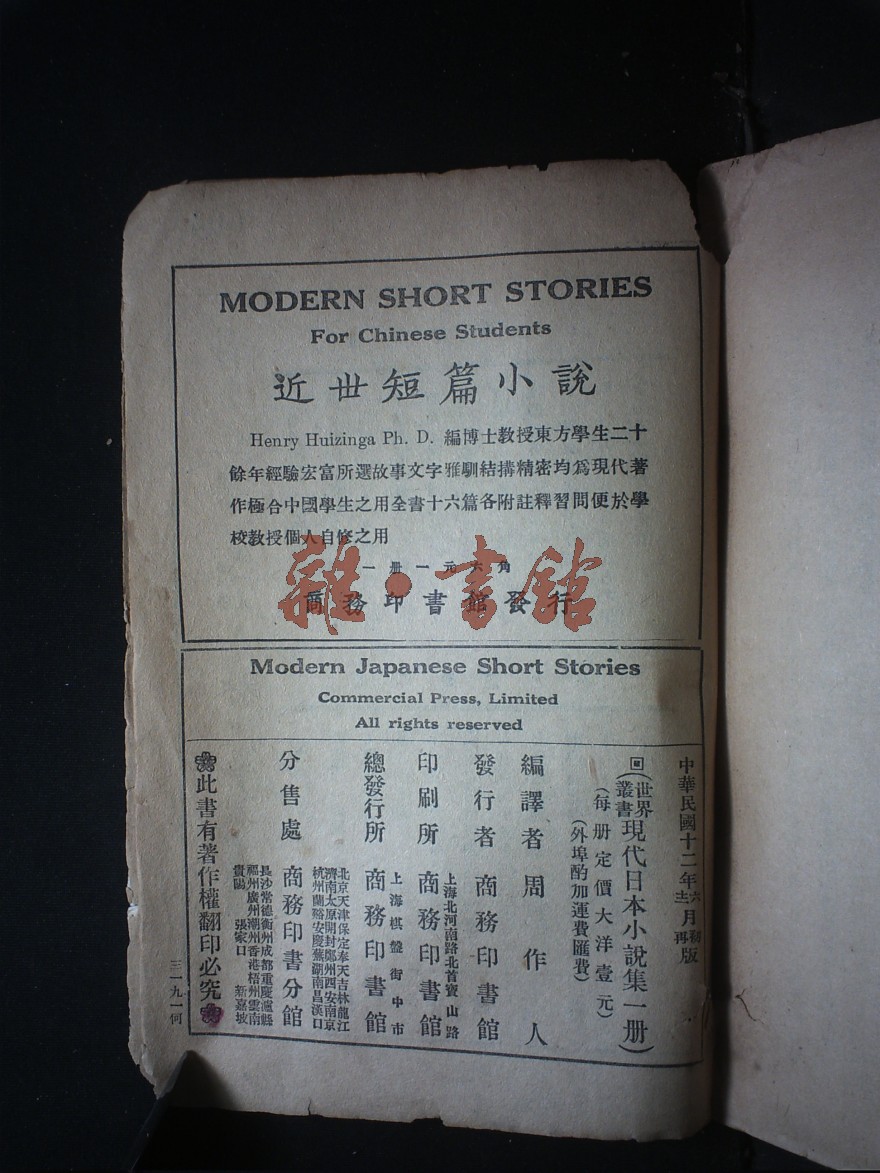 MODERN SHORT STORIES
For Chinese Students
近世短篇小說
Henry Huizinga Ph. D. 編博士教授東方學生二十
餘年經驗宏富所選故事文字雅馴結搆精密均爲現代著
作極合中國學生之用全書十六篇各附註釋習問便於學
校教授個人自修之用
一册一元六角
商務印書館發行
雜·書館
Modern Japanese Short Stories
Commercial Press, Limited
All rights reserved
中華民國十二年六月初版
十二月再版
(世界叢書)現代日本小說集一册)
(每册定價大洋壹元)
(外埠酌加運費匯費)
編譯者 周作人
發行者 商務印書館
上海北河南路北首寶山路
印刷所 商務印書館
上海棋盤街中市
總發行所 商務印書館
北京天津保定奉天吉林龍江
濟南太原開封鄭州西安南京
杭州蘭谿安慶蕪湖南昌漢口
分售處 商務印書分館
長沙常德衡州成都重慶瀘縣
福州廣州潮州香港梧州雲南
貴陽 張家口 新嘉坡
此書有著作權翻印必究
三一九一何